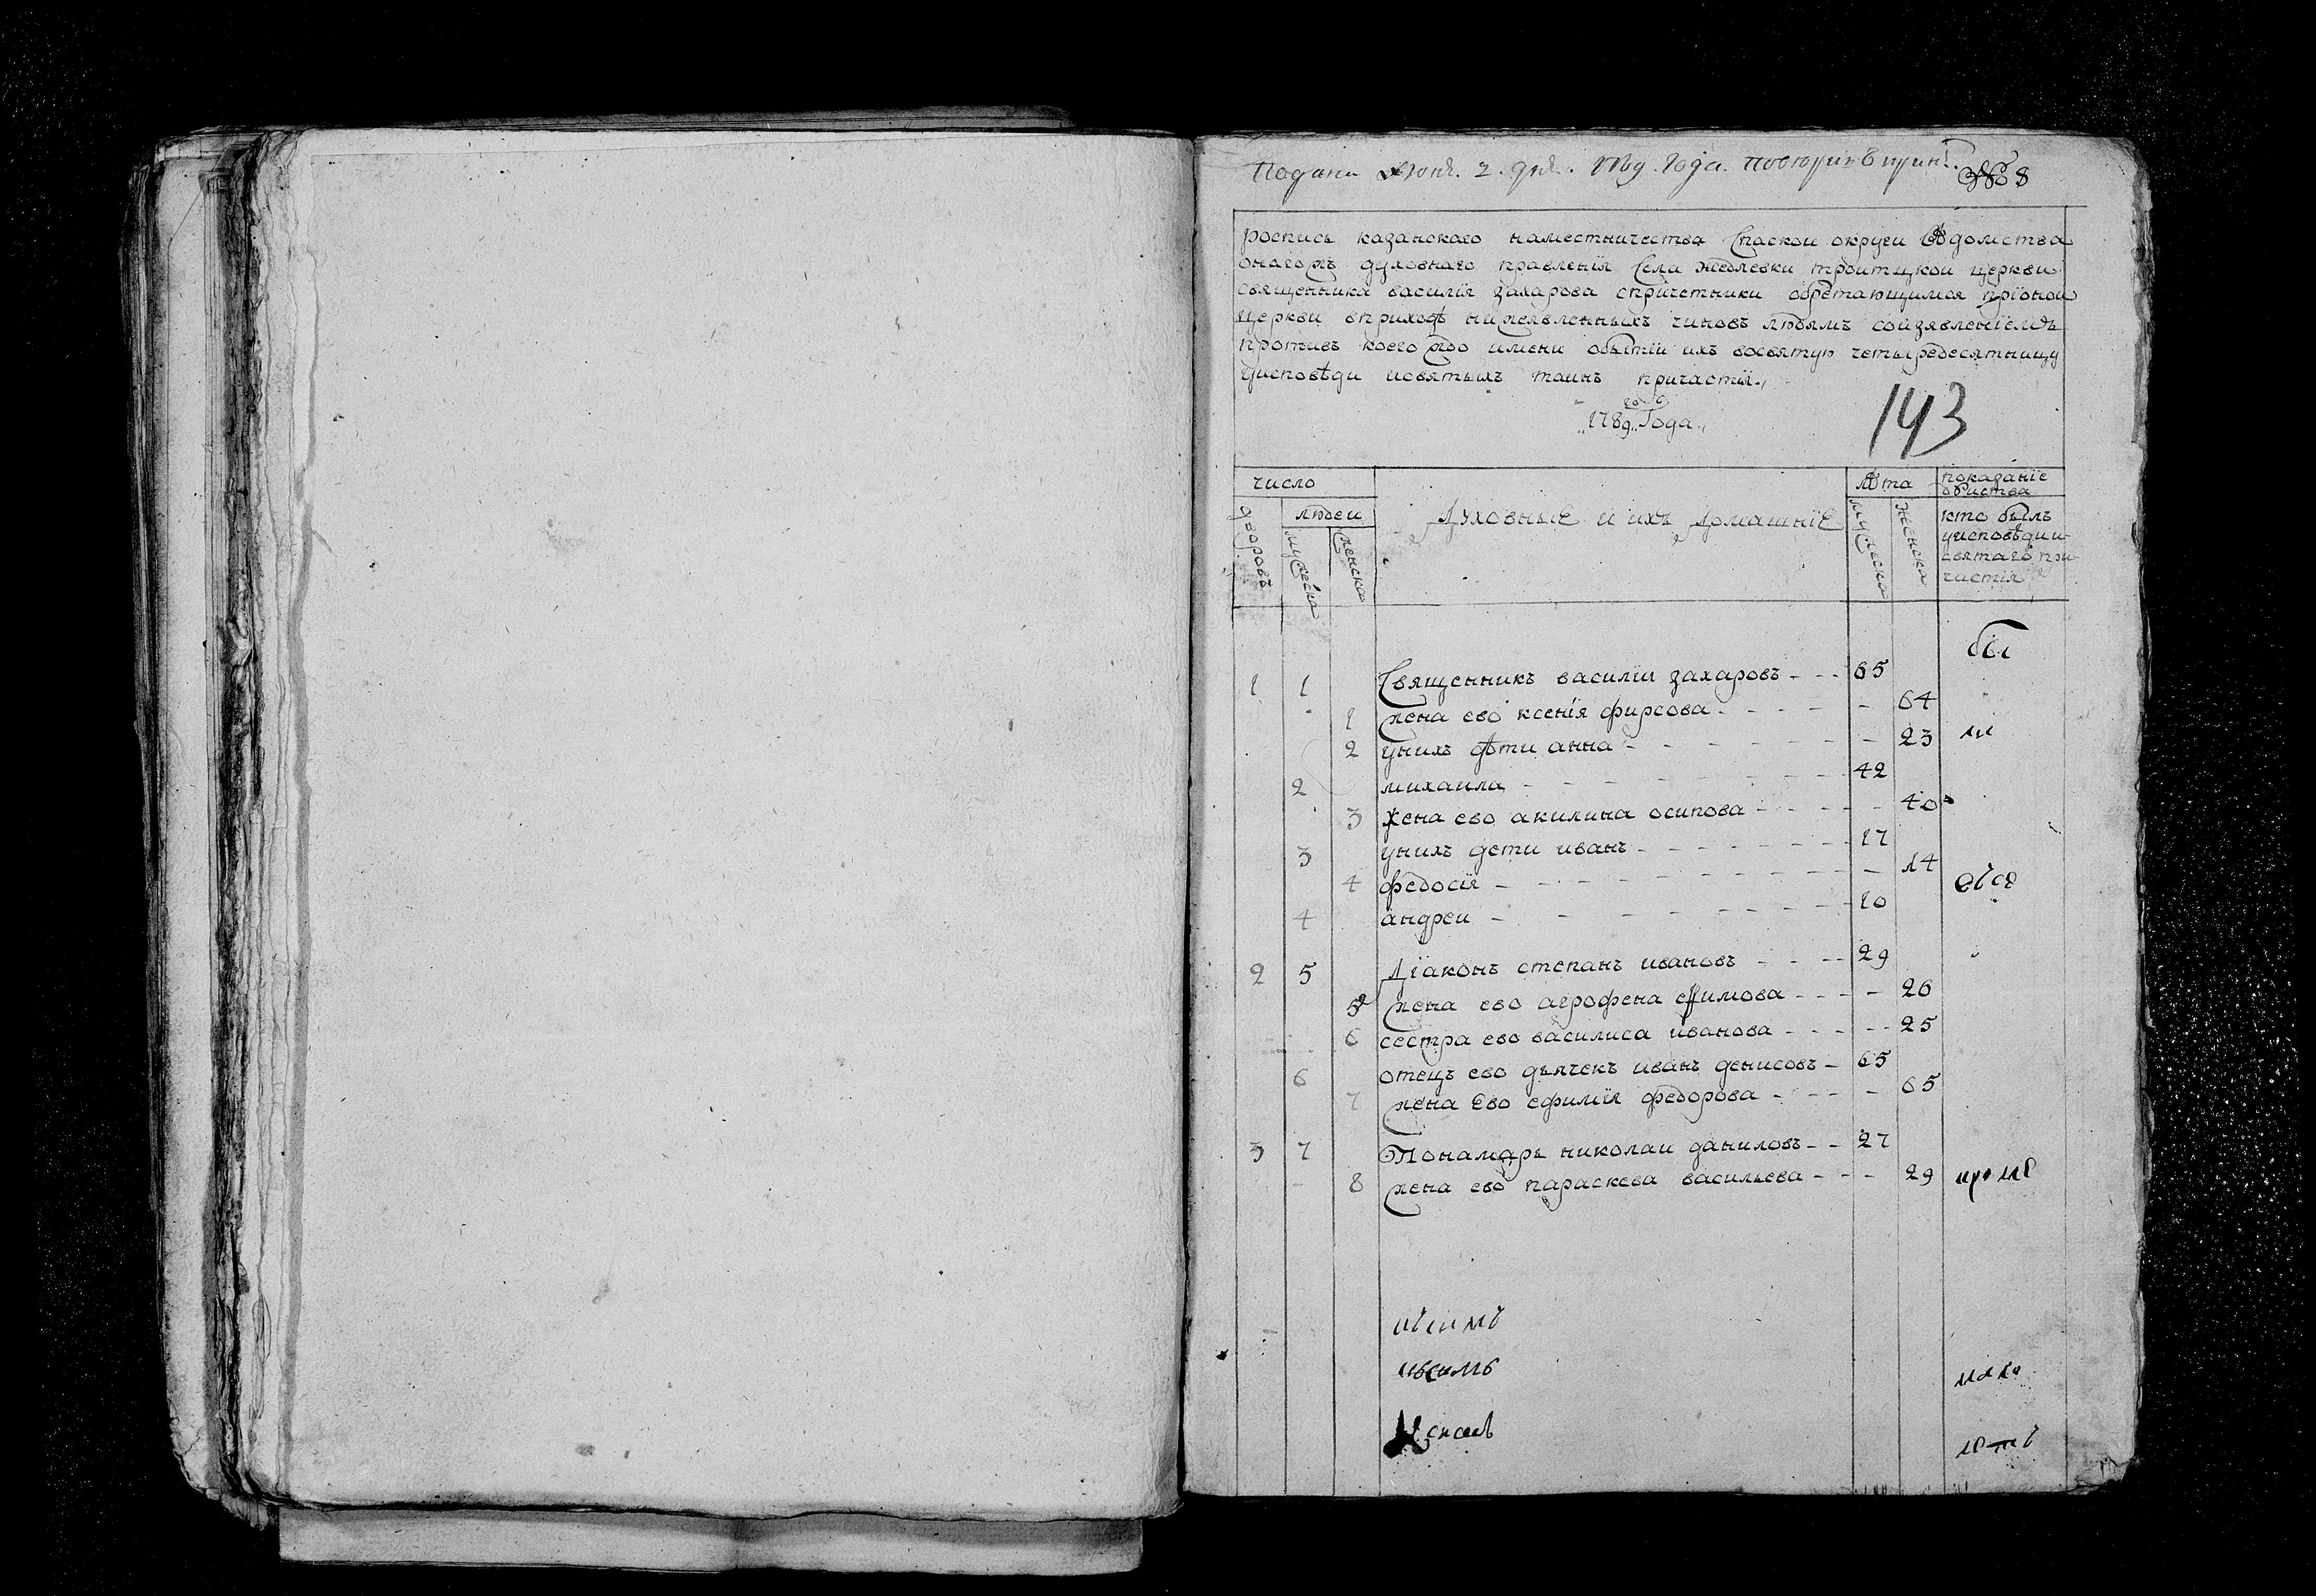 Подана Июня. 2. дня. 1789. Года.
№ 8
роспись казанскаго наместничества Спаскои округи вѣдомства
онагожъ духовнаго правленїя Села жедлевки троитцкои церкви
священника василїя захарова спричетники обретающимся прїонои
церкви вприходѣ нижеявленныхъ чиновъ людямъ соизявленїемъ
противъ коегождо имени обытїи ихъ восвятую четыредесятницу
уисповѣди исвятыхъ таинъ причастїя.,
1789 Года.,
143
число
лѣта
показанїе
людеи
Духовныѣ и ихъ домашнїѣ
кто былъ
дворовъ
мужеска
женска
мужеска
женска
уисповѣди и
святаго при
частїя
1 1 Священникъ василїи захаровъ - - - 65
1 жена ево ксенїя фирсова - - - - - 64
2 унихъ дѣти анна - - - - - - - 23
2 михаила - - - - - - - 42
3 жена ево акилина осипова - - - - - 40
3 унихъ дети иванъ - - - - - - - 17
4 федосїя - - - - - - - - - - 14
4 андреи - - - - - - - 10
2 5 Дїаконъ степанъ ивановъ - - - - 29
5 жена ево агрофена ефимова - - - - 26
6 сестра ево василиса иванова - - - - - 25
6 отецъ ево дьячекъ иванъ денисовъ - 65
7 жена ево ефимїя федорова - - - - 65
3 7 Понамарь николаи даниловъ - - 27
8 жена ево параскева васильева - - - 29